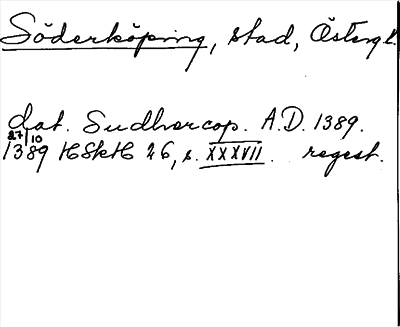 Söderköping, stad, Östergl.
dat. Sudhercop. A.D. 1389.
27/10
1389 HSkH 26, s. XXXVII. regest.